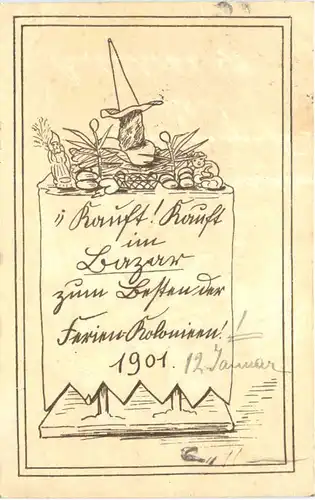 „Kauft! Kauft
im
Bazar
zum Besten der
Ferien-Kolonieen!!
1901. 12 Januar